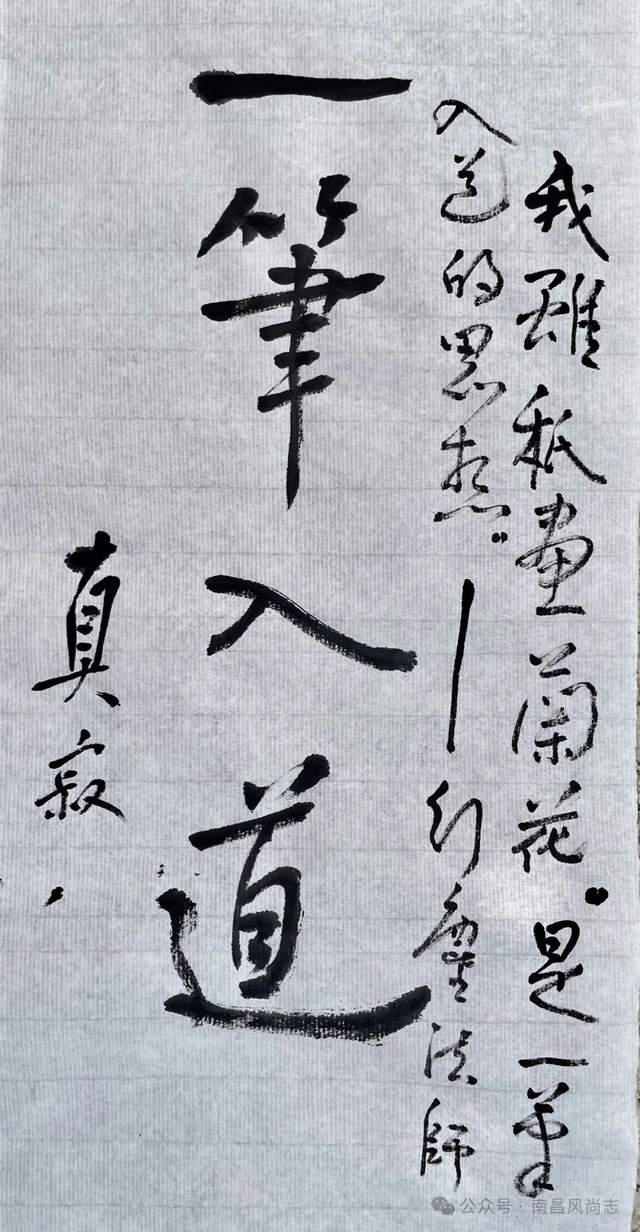 我雖秖畫蘭花。是一筆
入道的思想。— 法師
一筆入道
真寂
公众号 · 南昌风尚志